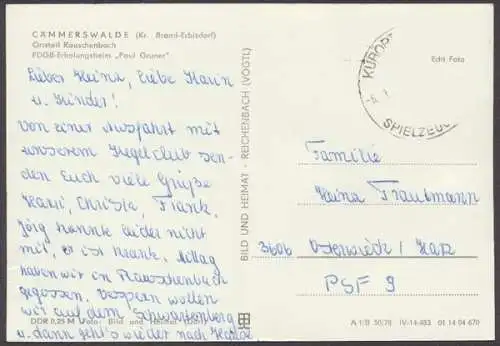 CÄMMERSWALDE (Kr. Brand-Erbisdorf)
Ortsteil Rauschenbach
FDGB-Erholungsheim „Paul Gruner"
Lieber Heinz, liebe Karin
u. Kinder!
Von einer Ausfahrt mit
unserem Kegelclub sen-
den Euch viele Grüße
Christa, Frank,
Jörg konnte leider nicht
mit, er ist krank. Mittag
haben wir in Rauschenbach
gegessen. Vespern wollen
wir auf dem Schwartenberg
u. dann geht's wieder nach Hause
DDR 0,25 M Foto: Bild und Heimat
BILD UND HEIMAT · REICHENBACH (VOGTL)
Echt Foto
KURORT
SPIELZEUG
Familie
Heinz Trautmann
3606 Osterwieck / Harz
PSF 9
A 1/B 50/78 IV-14-483 01 14 04 670